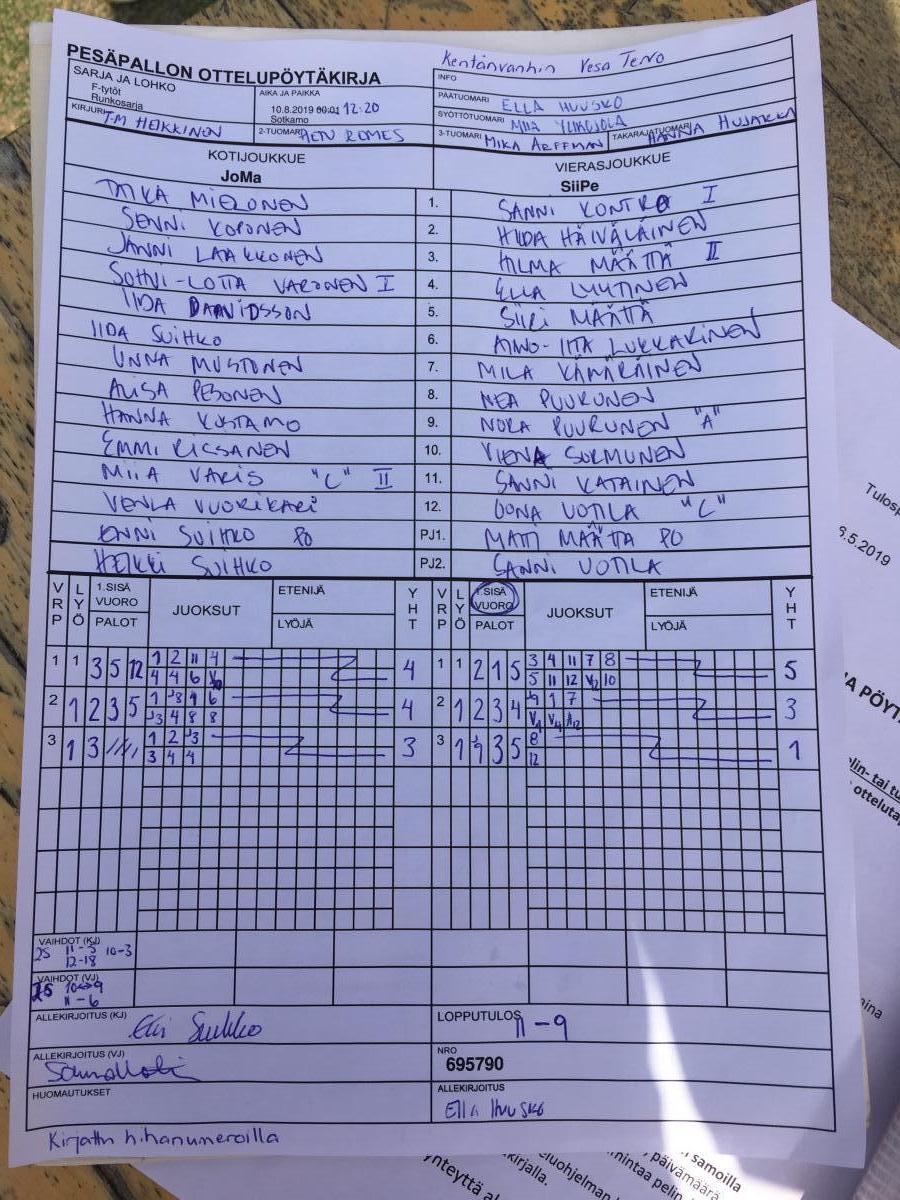 Kentänvanhin Vesa Tervo
PESÄPALLON OTTELUPÖYTÄKIRJA
SARJA JA LOHKO
F-tytöt
Runkosarja
AIKA JA PAIKKA
10.8.2019 00:01 12:20
Sotkamo
INFO
PÄÄTUOMARI ELLA HUUSKO
SYÖTTÖTUOMARI MIIA YLIKOJOLA
KIRJURI T-M HEIKKINEN
2-TUOMARI AETU ROMES
3-TUOMARI MIKA ARFFMAN
TAKARAJATUOMARI HANNA HUJAKKA
KOTIJOUKKUE
JoMa
VIERASJOUKKUE
SiiPe
TAIKA MIELONEN 1. SANNI KONTRO I
SENNI KOPONEN 2. HILDA HÄIVÄLÄINEN
JANNI LAAKKONEN 3. HILMA MÄÄTTÄ II
SOHNI-LOTTA VARONEN I 4. ELLA LYYTINEN
IIDA DAAVIDSSON 5. SIIRI MÄÄTTÄ
IIDA SUIHKO 6. AINO-IITA LUKKARINEN
UNNA MUSTONEN 7. MILA KÄMÄRÄINEN
ALISA PESONEN 8. NEA PUURUNEN
HANNA KUSTAMO 9. NOKA PUURUNEN "A"
EMMI RISSANEN 10. VIENA SORMUNEN
MIIA VARIS "C" II 11. SANNI KATAINEN
VENLA VUORIKARI 12. OONA UOTILA "C"
ENNI SUIHKO PO PJ1. MATI MÄÄTTÄ PO
HEIKKI SUIHKO PJ2. SANNI UOTILA
VRP LYÖ 1.SISÄ VUORO PALOT JUOKSUT ETENIJÄ LYÖJÄ YHT VRP LYÖ 1.SISÄ VUORO PALOT JUOKSUT ETENIJÄ LYÖJÄ YHT
1 1 3 5 12 1 2 11 4 4 1 1 2 1 5 3 4 11 7 8 5
4 4 6 V10 5 11 12 V12 10
2 1 2 3 5 1 J3 9 6 4 2 1 2 3 4 9 1 7 3
J3 4 8 8 V4 V4 A12
3 1 3 1 2 J3 3 3 1 9 3 5 8 1
3 4 4 12
VAIHDOT (KJ)
2S 11-5 10-3
12-18
VAIHDOT (VJ)
2S 10↔9
11-6
ALLEKIRJOITUS (KJ)
LOPPUTULOS 11-9
ALLEKIRJOITUS (VJ)
NRO
695790
HUOMAUTUKSET
ALLEKIRJOITUS
Ella Huusko
Kirjattu hihanumeroilla
Tulosp
6.5.2019
A PÖYT
elin- tai tu
ottelutap
mina
samoilla
päivämäärä
mintaa pelin
eluohjelman
kirjalla.
yhteyttä al